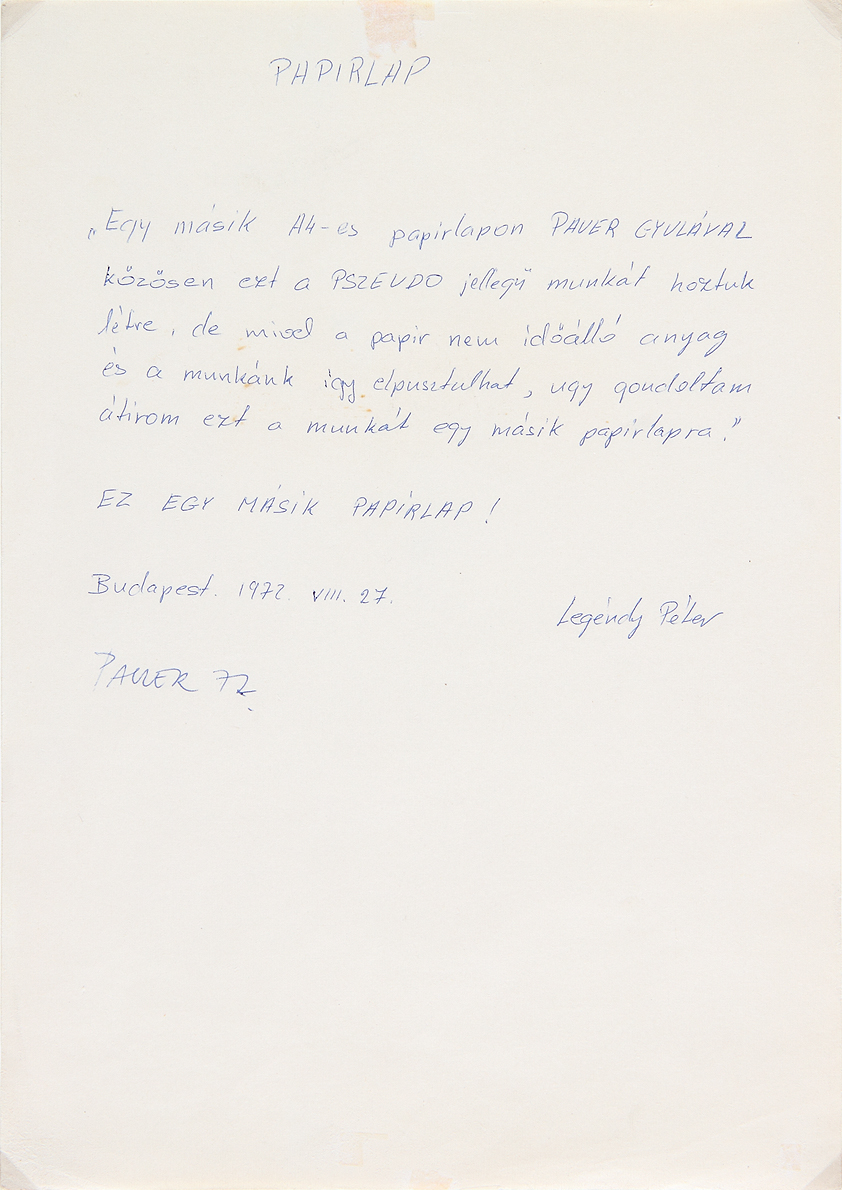 PAPIRLAP
„Egy másik A4-es papirlapon PAUER GYULÁVAL
közösen ezt a PSZEUDO jellegű munkát hoztuk
létre, de mivel a papir nem időálló anyag
és a munkánk igy elpusztulhat, ugy gondoltam
átirom ezt a munkát egy másik papirlapra."
EZ EGY MÁSIK PAPÍRLAP!
Budapest. 1972. VIII. 27.
Legéndy Péter
PAUER 72